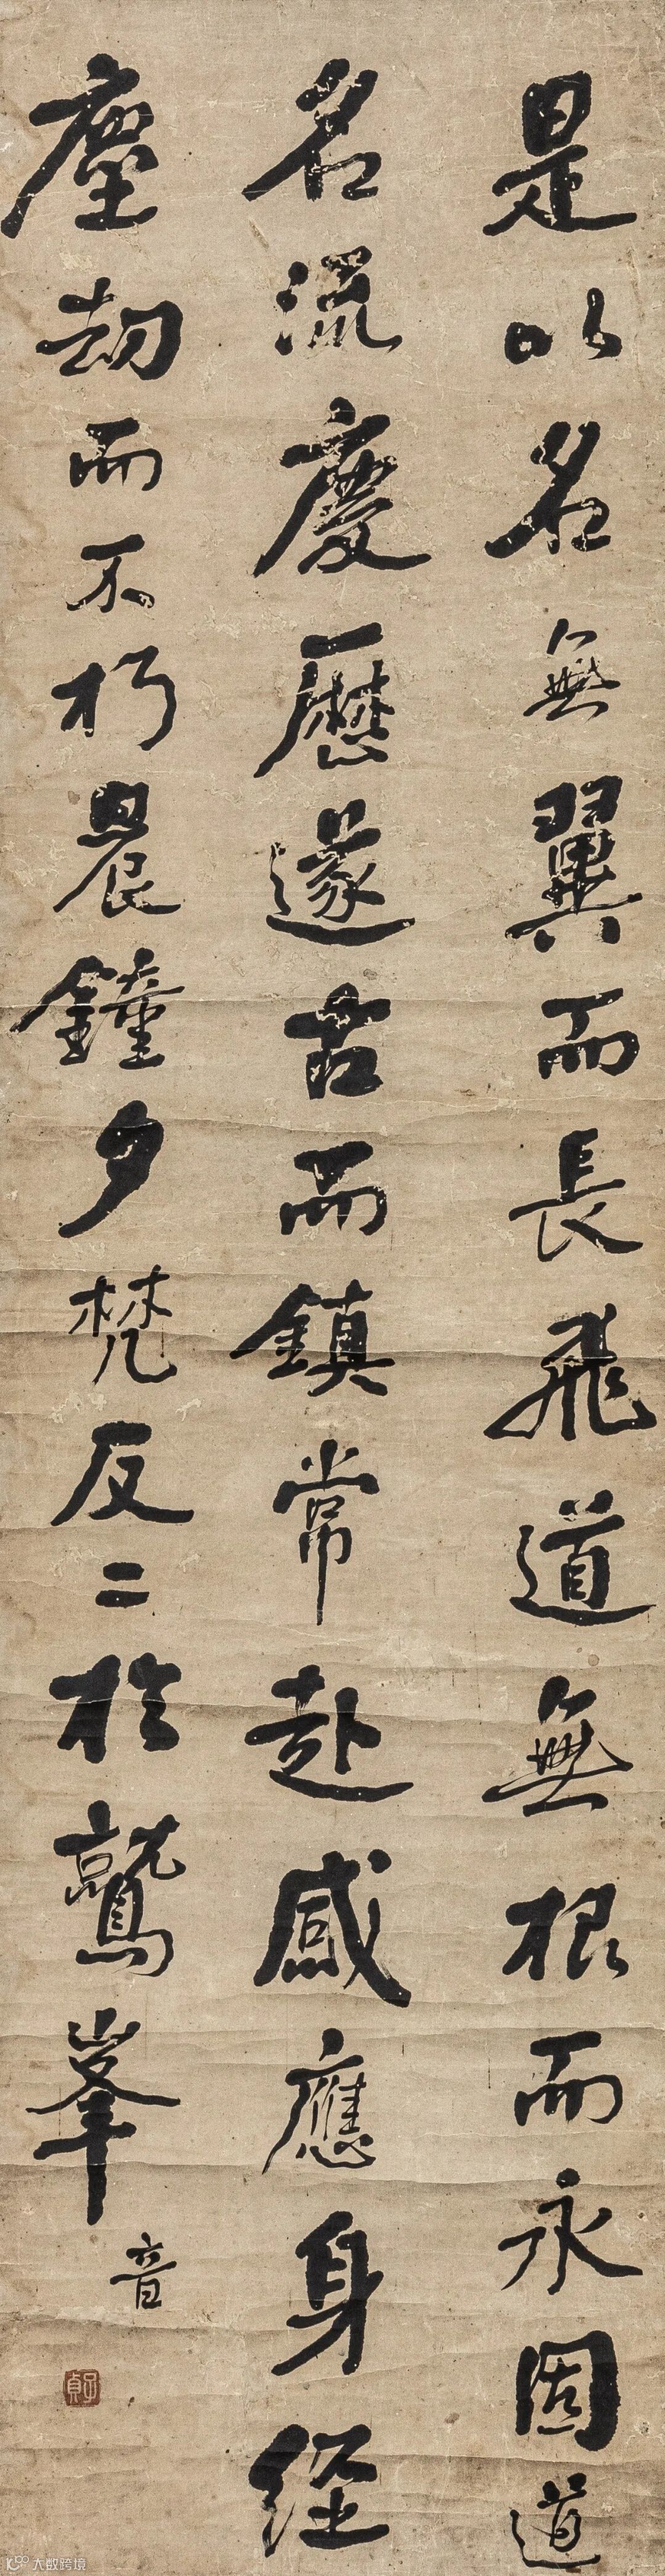 是以名無翼而長飛道無根而永固道
名流慶歷遂古而鎮常赴感應身經
塵劫而不朽晨鐘夕梵交二於鷲峯
音
大數跨境